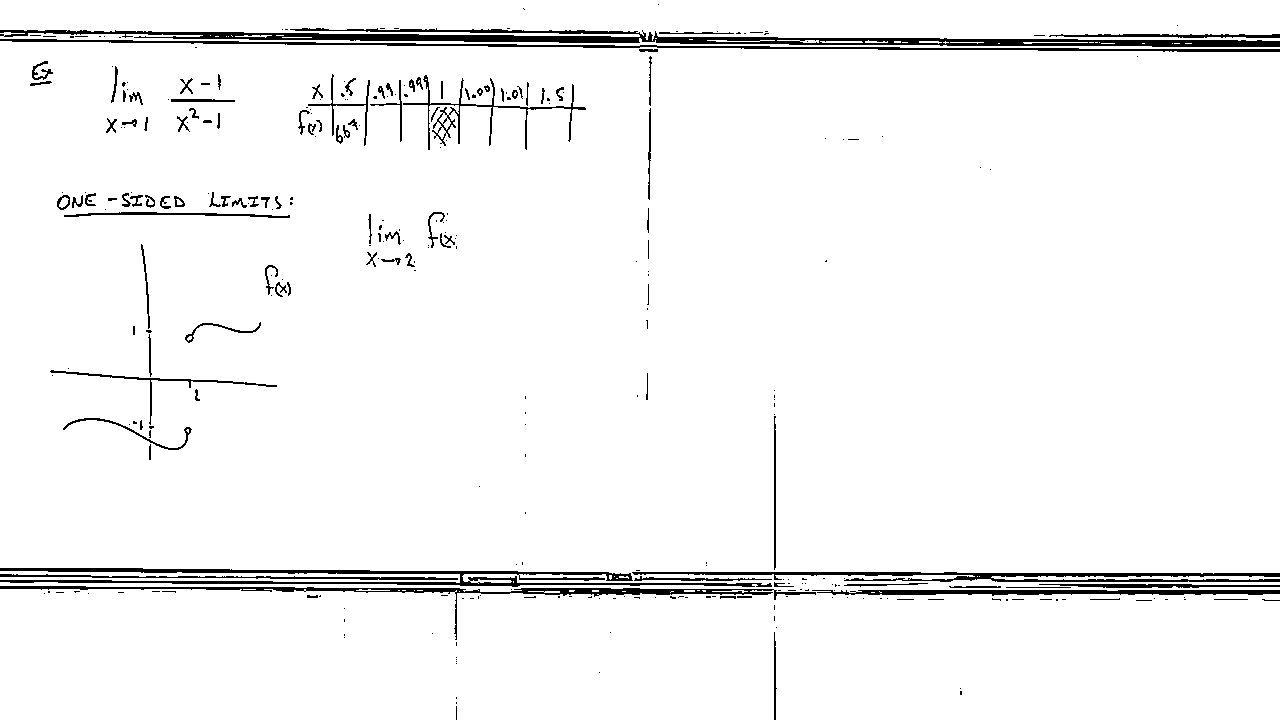 Ex
lim x→1 (x-1)/(x²-1)
x .5 .99 .999 1 1.001 1.01 1.5
f(x) .667
ONE-SIDED LIMITS:
lim x→2 f(x
f(x)
1
2
-1